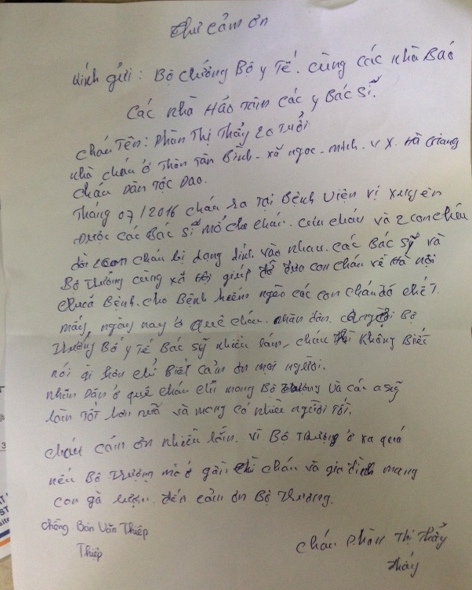 Thư cảm ơn
Kính gửi: Bộ trưởng Bộ y Tế. cùng các nhà Báo
Các nhà Hảo tâm các y Bác Sĩ.
cháu Tên: Phàn Thị Thẩy 20 Tuổi
nhà cháu ở Thôn Tân Bình - xã ngọc - minh. V X. Hà Giang
cháu Dân Tộc Dao.
Tháng 07/2016 cháu ra Tại Bệnh Viện Vị Xuyên
Được các Bác Sĩ mổ cho cháu. cứu cháu và 2 con cháu
2 con cháu bị dạng dính vào nhau. các Bác Sỹ và
Bộ Trưởng cùng xã hội giúp đỡ đưa con cháu về Hà nội
chữa Bệnh. cho Bệnh hiểm ngèo các con cháu đã chết.
mấy ngày nay ở quê cháu. nhân dân Bộ
Trưởng Bộ y Tế Bác Sỹ nhiều lắm, cháu Không Biết
nói gì hơn chỉ Biết Cảm ơn mọi người.
nhân Dân ở quê cháu chỉ mong Bộ Trưởng và các Sỹ
làm Tốt hơn nữa và mong có nhiều người Tốt.
cháu cám ơn nhiều lắm. vì Bộ Trưởng ở xa quá
nếu Bộ Trưởng mà ở gần thì cháu và gia đình mang
con gà đến cảm ơn Bộ Trưởng.
chồng Bàn Văn Thiệp
Thiệp
Cháu Phàn Thị Thẩy
Thẩy